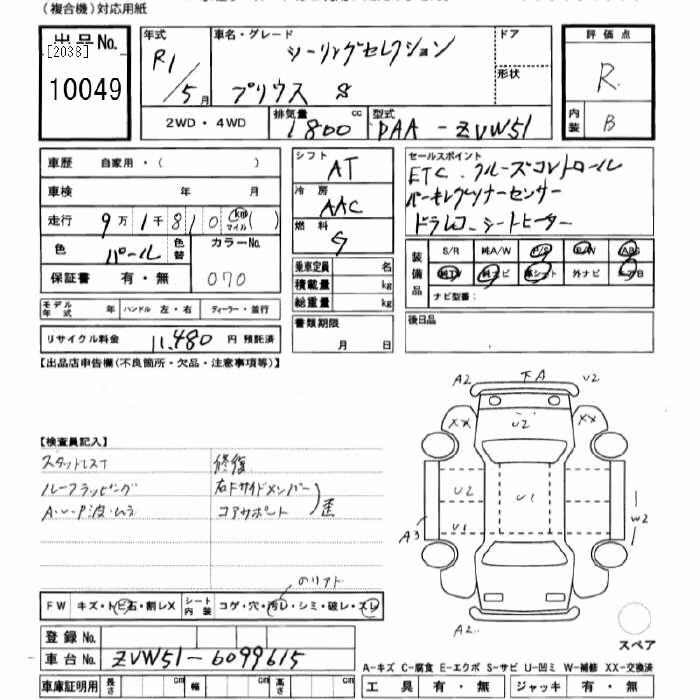 (複合機)対応用紙
出品No. [2038] 10049
年式 R1/5月
車名・グレード シーリングセレクション プリウス S
ドア
形状
評価点 R
内装 B
2WD・4WD 排気量 1800 cc 型式 DAA-ZVW51
車歴 自家用・( )
車検 年 月
走行 9万1千810 km マイル ( )
色 パール 色替 カラーNo. 070
保証書 有・無
モデル年式 年 ハンドル 左・右 ディーラー・並行
リサイクル料金 11,480 円 預託済
シフト AT
冷房 AAC
燃料 G
乗車定員 名
積載量 kg
総重量 kg
書類期限 月 日
セールスポイント
ETC クルーズコントロール
パーキングソナーセンサー
ドラレコ シートヒーター
装備品 S/R 純A/W P/S P/W ABS
純TV 純ナビ 革シート 外ナビ エアB
ナビ型番:
後日品
【出品店申告欄(不良箇所・欠品・注意事項等)】
【検査員記入】
スタッドレスT 修復
ルーフラッピング 右Fサイドメンバー
A・U・P波・ムラ コアサポート 歪
A2 下A U2
XX U2 XX
U2 U1
U1
A3 W2
A2
のリアト
FW キズ・トビ石・割レX シート内装 コゲ・穴・汚レ・シミ・破レ・スレ
登録No.
車台No. ZVW51-6099615
スペア
A-キズ C-腐食 E-エクボ S-サビ U-凹ミ W-補修 XX-交換済
車庫証明用 長さ cm 幅 cm 高さ cm
工具 有・無 ジャッキ 有・無